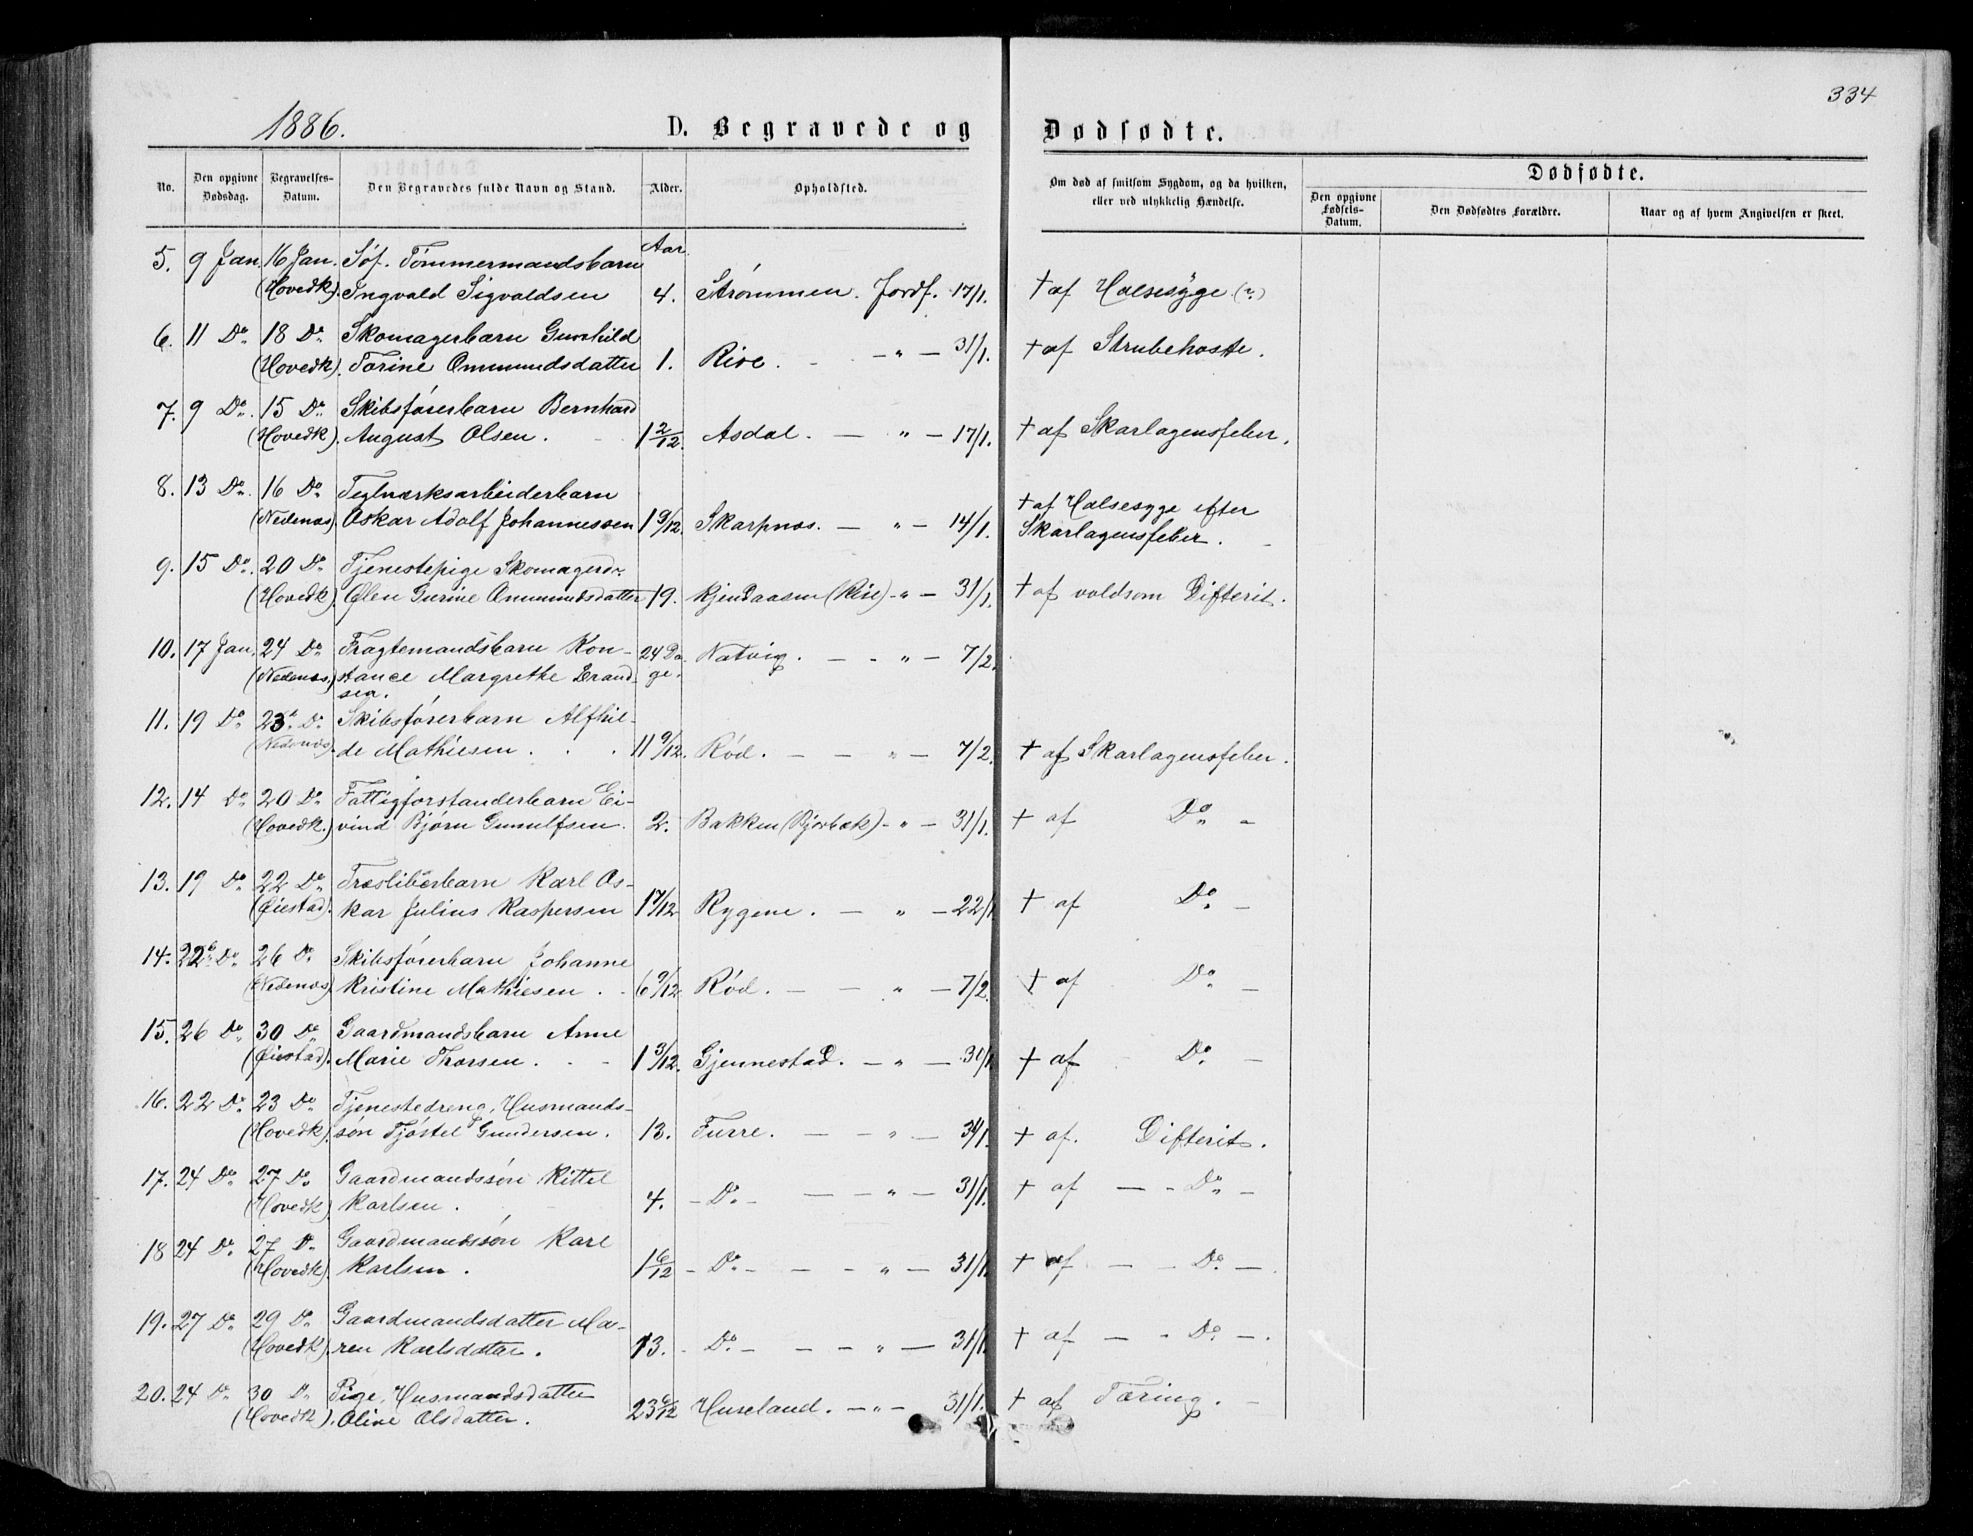 334
1886.
D. Begravede og Dødfødte.
No. Den opgivne Dødsdag. Begravelses-Datum. Den Begravedes fulde Navn og Stand. Alder. Opholdsted. Om død af smitsom Sygdom, og da hvilken, eller ved ulykkelig Hændelse. Dødfødte. Den opgivne Fødsels-Datum. Den Dødfødtes Forældre. Naar og af hvem Angivelsen er skeet.
5. 9 Jan. 16 Jan. Søf. Tømmermandsbarn Aar.
(Hovedk). Ingvald Sigvaldsen 4. Strømmen. Jordf. 17/1. † af Halsesyge
6. 11 Do. 18 Do. Skomagerbarn Gunhild
(Hovedk). Torine Ommundsdatter 1. Rise. - " - 31/1. † af Strubehoste.
7. 9 Do. 15 Do. Skibsførerbarn Bernhard
(Hovedk). August Olsen. 1 2/12. Asdal. - " - 17/1. † af Skarlagensfeber.
8. 13 Do. 16 Do. Teglværksarbeiderbarn
(Nedenæs). Oskar Adolf Johannessen 1 9/12. Skarpnæs. - " - 14/1. † af Halsesyge efter
Skarlagensfeber.
9. 15 Do. 20 Do. Tjenestepige Skomagerd.
(Hovedk). Ommundsdatter 19. (Rise) - " - 31/1. † af voldsom Difterit.
10. 17 Jan. 24 Do. Fragtemandsbarn Kon-
(Nedenæs) stance Margrethe Brand- 24 Da- Natvig. - " - 7/2.
sen. ge.
11. 19 Do. 23. Do. Skibsførerbarn Alfhil-
(Nedenæs). de Mathiesen. 11 9/12. Rød. - " - 7/2. † af Skarlagensfeber.
12. 14 Do. 20 Do. Fattigforstanderbarn Ei-
(Hovedk.) vind Bjørn Gunulfsen. 2. Bakken (Bjorbæk) - " - 31/1. † af Do -
13. 19 Do. 22 Do. Træsliberbarn Karl Os-
(Øiestad). kar Julius Kaspersen 1 7/12. Rygene. - " - 22/1 † af Do. -
14. 22. Do. 26 Do. Skibsførerbarn Johanne
(Nedenæs). Kristine Mathiesen. 6 9/12. Rød. - " - 7/2. † af Do. -
15. 26 Do. 30 Do. Gaardmandsbarn Anne
(Øiestad). Marie Thorsen. 1 3/12. Gjennestad. - " - 31/1 † af Do. -
16. 22 Do. 23 Do. Tjenestedreng, Husmands-
(Hovedk). søn Tjøstel Gundersen. 13. Furre. - " - 31/1. † af. Difterit.
17. 24 Do. 27 Do. Gaardmandssøn Kittel
(Hovedk). Karlsen. 4. - Do. - " - 31/1. † af - - Do. -
18 24 Do. 27 Do. Gaardmandssøn Karl
(Hovedk). Karlsen. 1 6/12 - Do. - " - 31/1. † af - - Do. -
19. 27 Do. 29 Do. Gaardmandsdatter Ma-
(Hovedk). ren Karlsdatter. 13. - Do. - " - 31/1. † af - - Do. -
20. 24 Do. 30 Do. Pige, Husmandsdatter
(Hovedk). Oline Olsdatter. 23 6/12 Huseland. - " - 31/1. † af Tæring.